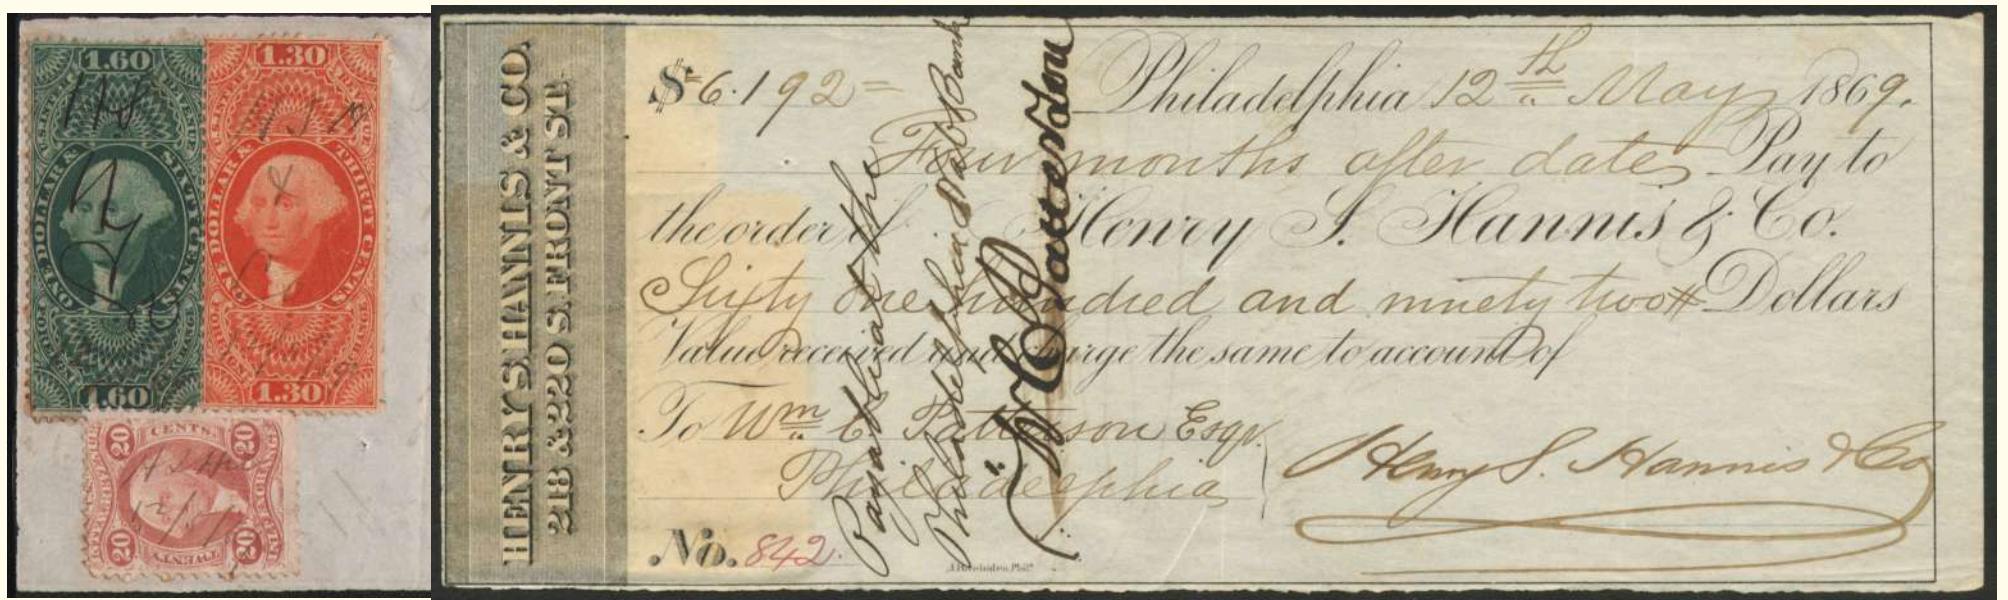 1.60
ONE DOLLAR & SIXTY CENTS
1.60
1.30
ONE DOLLAR & THIRTY CENTS
1.30
20 CENTS 20
20 TWENTY 20
HENRY S. HANNIS & CO.
218 & 220 S. FRONT ST.
$6.192= Philadelphia 12th May 1869.
Four months after date Pay to
the order of Henry S. Hannis & Co.
Sixty one hundred and ninety two Dollars
Value received and charge the same to account of
To Wm C Patterson Esqr.
Philadelphia
Henry S. Hannis & Co
No. 842.
Payable at the
Philadelphia Nat Bank
W C Patterson